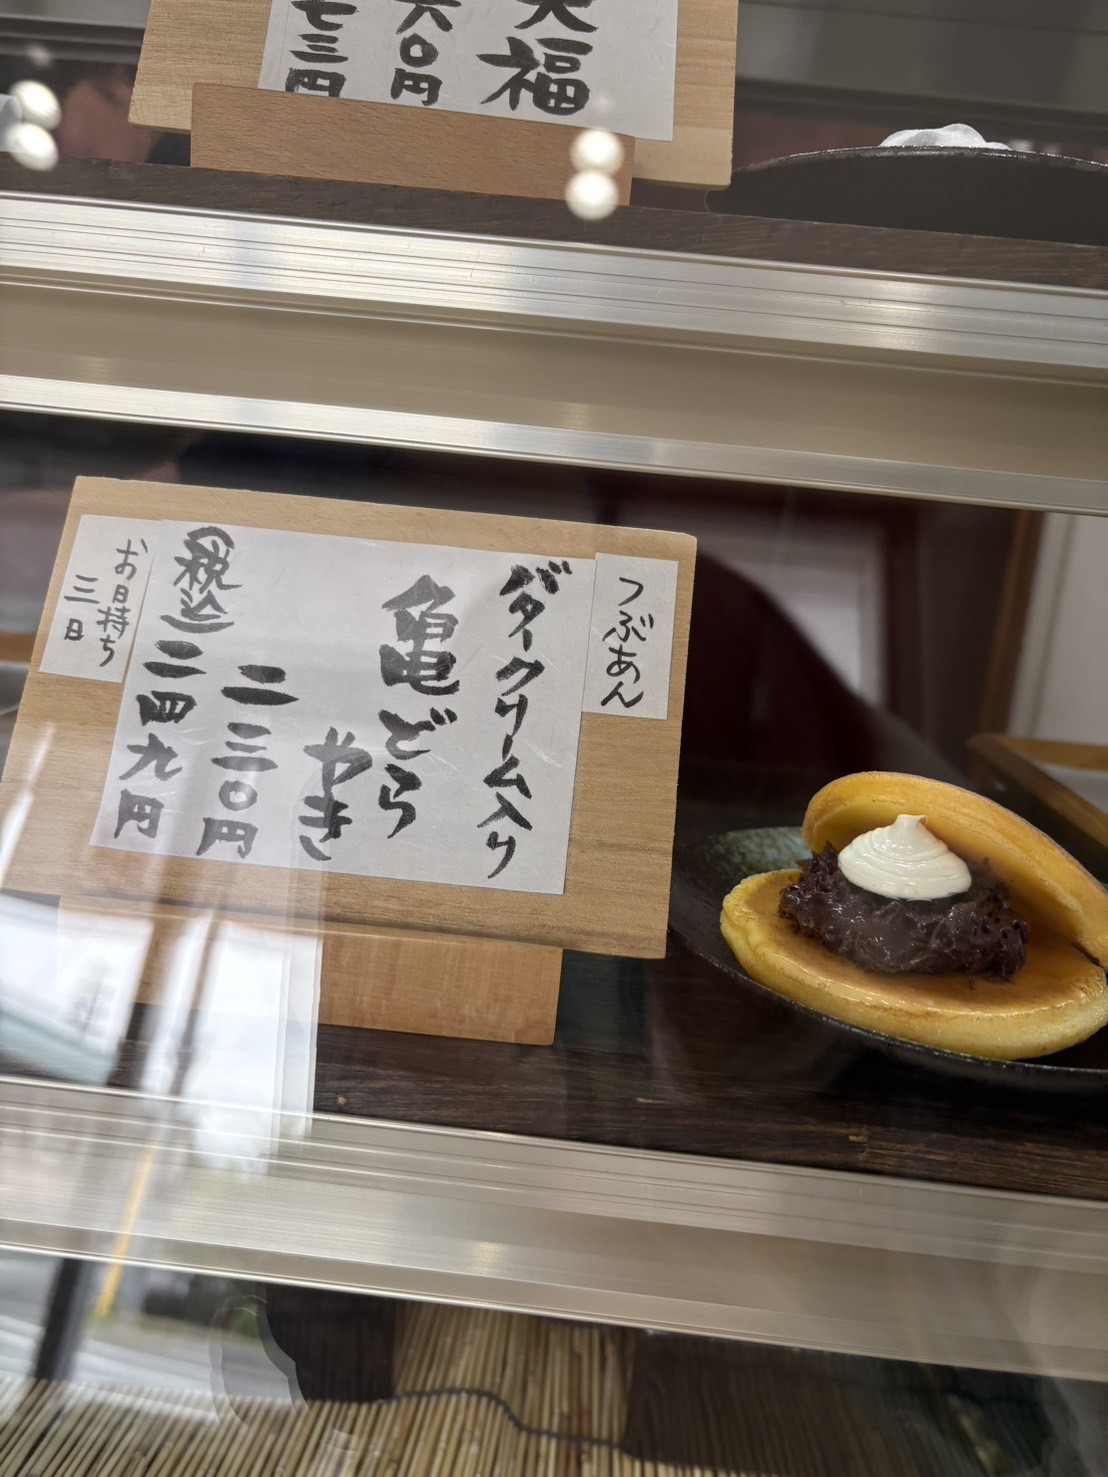 大福
六〇円
七三円
つぶあん
バタークリーム入り
亀どら
やき
二三〇円
(税込)二四九円
お日持ち
三日